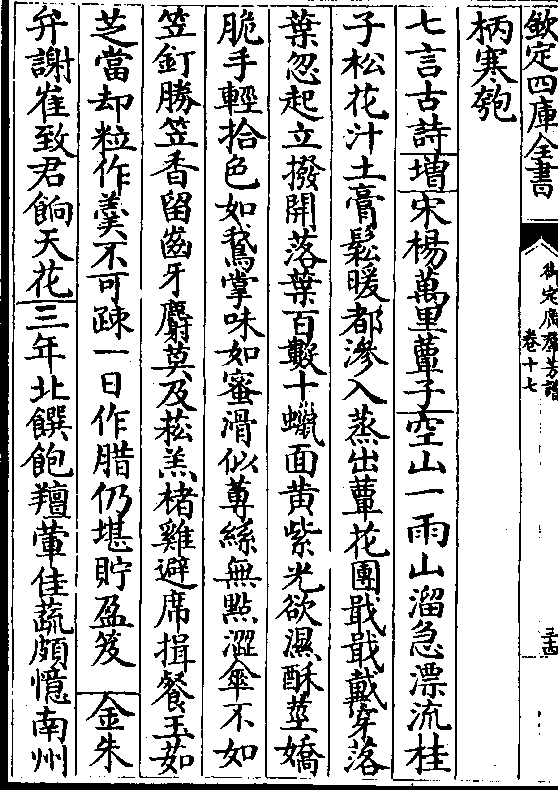 欽定四庫全書
御定廣羣芳譜
卷十七
柄寒匏
七言古詩增宋楊萬里蕈子空山一雨山溜急漂流桂
子松花汁土膏鬆暖都滲入蒸出蕈花團戢戢戴穿落
葉忽起立撥開落葉百數十蠟面黄紫光欲濕酥莖嬌
脆手輕拾色如鵞掌味如蜜滑似蓴絲無點澀傘不如
笠釘勝笠香留齒牙麝莫及菘羔楮雞避席揖餐玉茹
芝當却粒作羮不可疎一日作腊仍堪貯盈笈金朱
弁謝崔致君餉天花三年北饌飽羶葷佳蔬頗憶南州